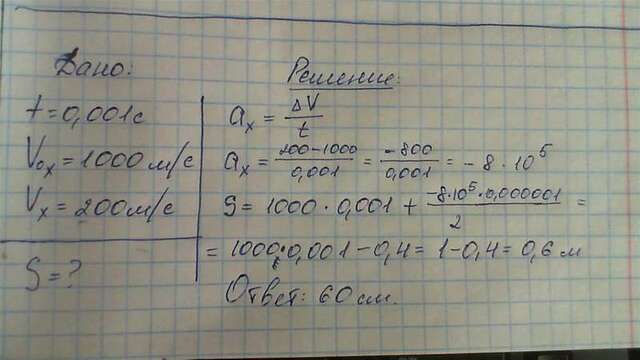 Дано:
t = 0,001 с
V₀ₓ = 1000 м/с
Vₓ = 200 м/с
S = ?
Решение:
aₓ = ΔV / t
aₓ = 200 - 1000 / 0,001 = -800 / 0,001 = -8 · 10⁵
S = 1000 · 0,001 + -8·10⁵·0,000001 / 2 =
= 1000 · 0,001 - 0,4 = 1 - 0,4 = 0,6 м
Ответ: 60 см.